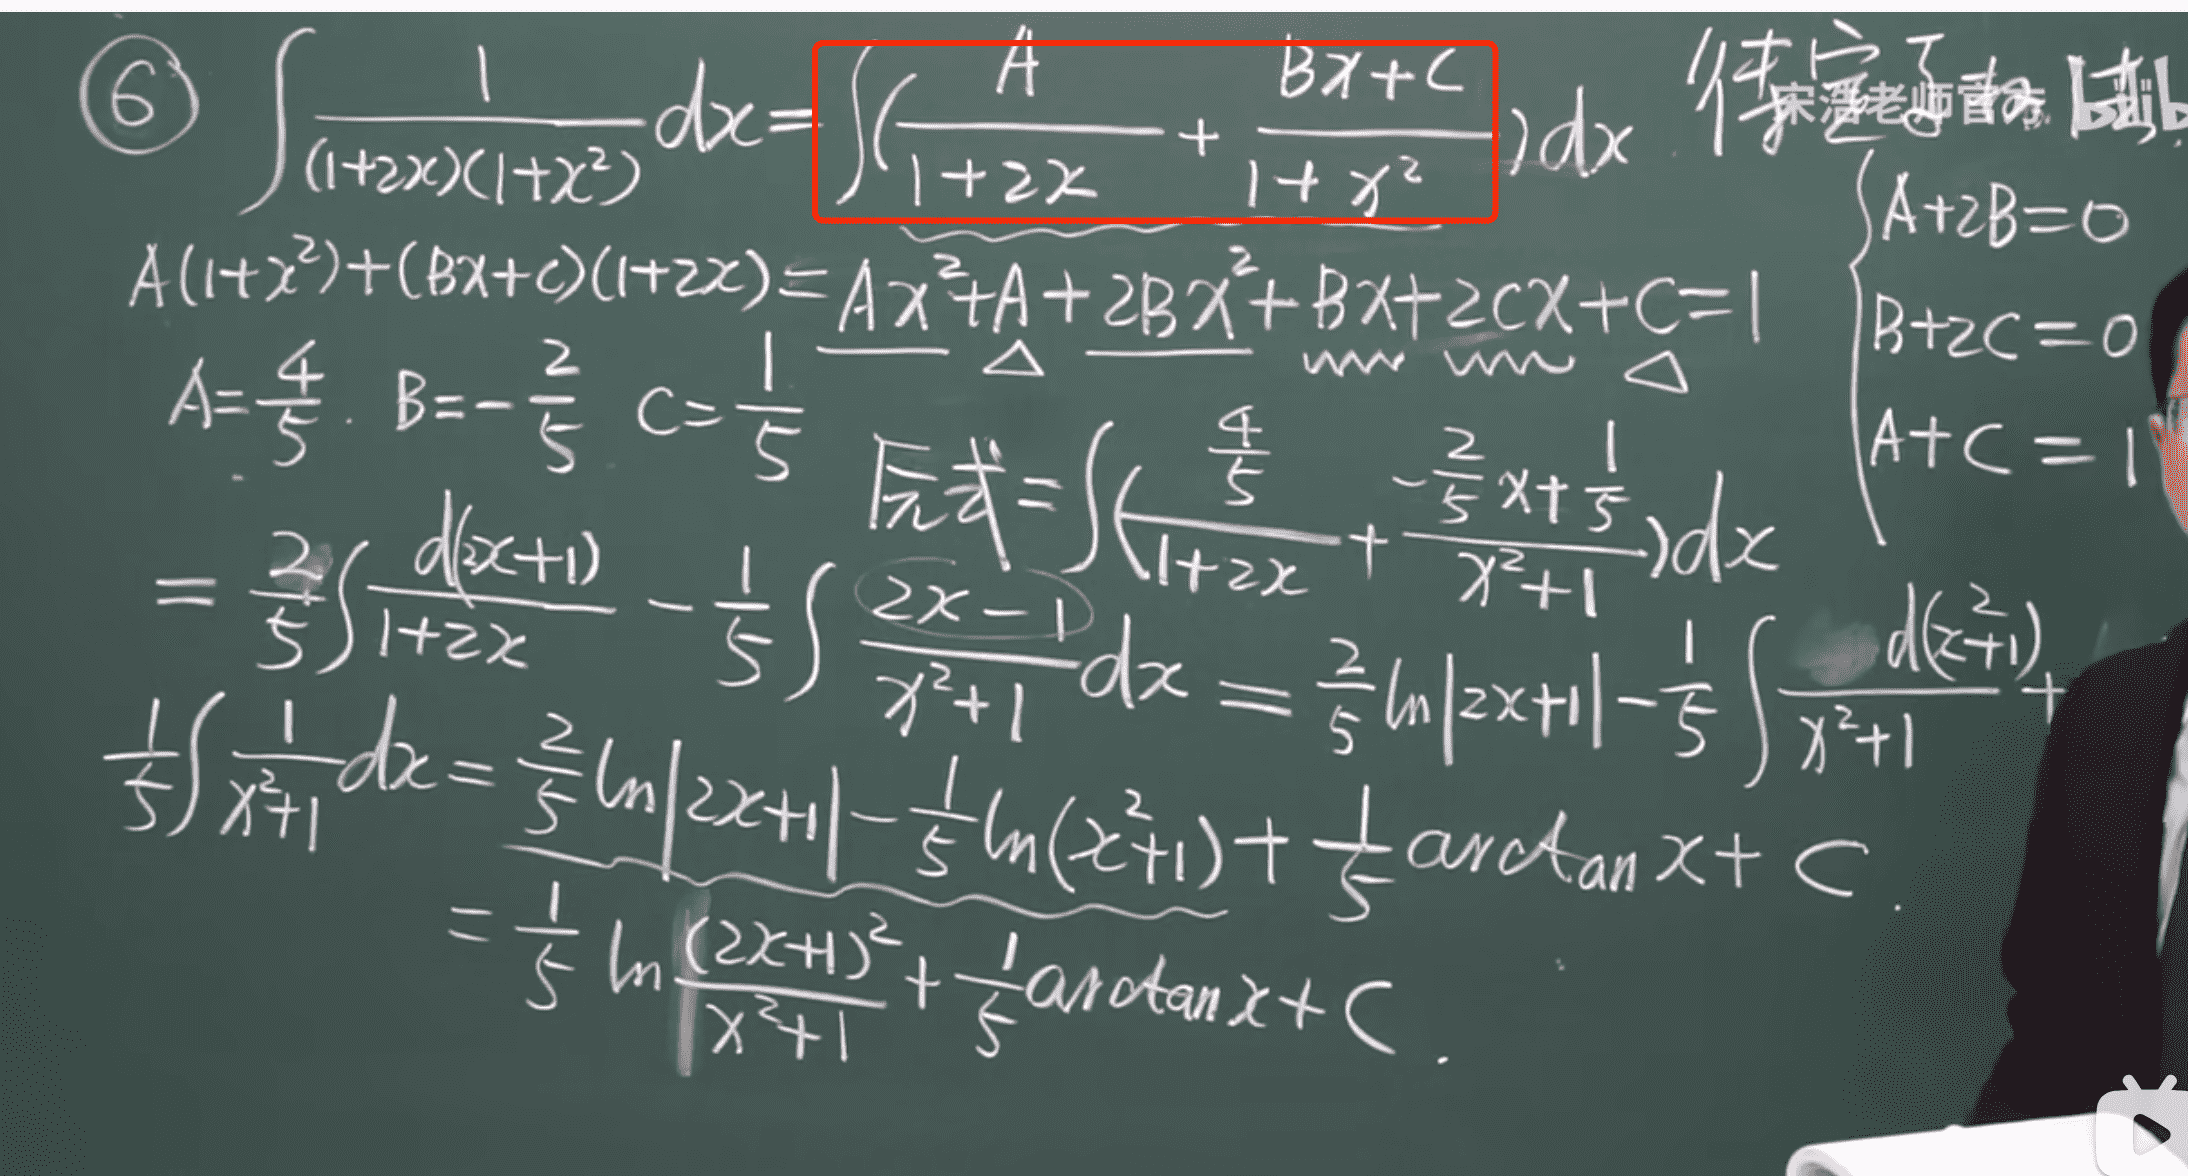 ⑥ ∫ 1/((1+2x)(1+x²)) dx = ∫( A/(1+2x) + (Bx+C)/(1+x²) )dx. 待定系数法.
宋浩老师官方 bilib
A(1+x²)+(Bx+C)(1+2x)=Ax²+A+2Bx²+Bx+2Cx+C=1
{ A+2B=0
B+2C=0
A+C=1
A=4/5. B=-2/5 C=1/5
原式=∫( (4/5)/(1+2x) + (-2/5 x+1/5)/(x²+1) )dx
= 2/5 ∫ d(2x+1)/(1+2x) - 1/5 ∫ (2x-1)/(x²+1) dx = 2/5 ln|2x+1| - 1/5 ∫ d(x²+1)/(x²+1) +
1/5 ∫ 1/(x²+1) dx = 2/5 ln|2x+1| - 1/5 ln(x²+1) + 1/5 arctan x + C.
= 1/5 ln (2x+1)²/(x²+1) + 1/5 arctan x + C.